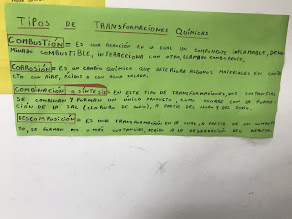 TIPOS DE TRANSFORMACIONES QUÍMICAS
COMBUSTIÓN = ES UNA REACCIÓN EN LA CUAL UN COMPONENTE INFLAMABLE, DENO-
MINADO COMBUSTIBLE, INTERACCIONA CON OTRO, LLAMADO COMBURENTE.
CORROSIÓN = ES UN CAMBIO QUÍMICO QUE DETERIORA ALGUNOS MATERIALES EN CONTAC
TO CON AIRE, ÁCIDOS O CON AGUA SALADA.
COMBINACIÓN O SÍNTESIS = EN ESTE TIPO DE TRANSFORMACIONES, DOS SUSTANCIAS
SE COMBINAN Y FORMAN UN ÚNICO PRODUCTO, COMO OCURRE CON LA FORMA-
CIÓN DE LA SAL (CLORURO DE SODIO), A PARTIR DEL CLORO Y DEL SODIO.
DESCOMPOSICIÓN = ES UNA TRANSFORMACIÓN EN LA CUAL, A PARTIR DE UN COMPUES
TO, SE FORMAN DOS O MÁS SUSTANCIAS, DEBIDO A LA DEGRADACIÓN DEL MATERIAL.